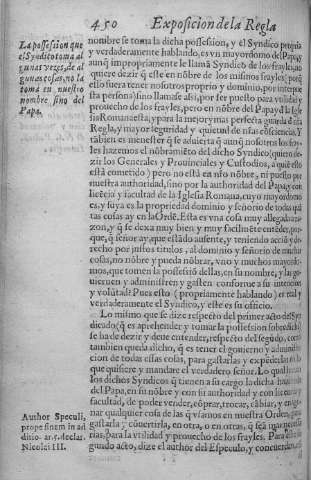 450 Exposicion de la Regla
La possession que
el Syndico toma al
gunas vezes, de al
gunas cosas, no la
toma en nuestro
nombre sino del
Papa.
nombre se toma la dicha possession, y el Syndico propria
y verdaderamente hablando, es vn mayordomo del Papa, y
aunq̃ impropriamente le llamã Syndico de los frayles, no
quiere dezir q̃ este en nõbre de los mismos frayles; porq̃
esto fuera tener nosotros proprio y dominio, por
persona) sino llamase assi, por ser puesto para vtilidad y
prouecho de los frayles, pero en nõbre del Papa y de la Igle
sia Romana esta, y para la mejor y mas perfecta guarda de
Regla, y mayor seguridad y quietud de nras cõsciencias. Y
tãbien es menester q̃ se aduierta q̃ aunq̃ nosotros los fray
les hazemos el nõbramiẽto del dicho Syndico (quiero de-
zir los Generales y Prouinciales y Custodios, a quiẽ esto
està cometido) pero no està en nro nõbre, ni puesto por
nuestra authoridad, sino por la authoridad del Papa, y con
licẽcia y facultad de la Iglesia Romana, cuyo mayordomo
es, y suya es la propriedad dominio y señorio de todas
tas cosas ay en la Ordẽ. Esta es vna cosa muy allegada a ra-
zon, y q̃ se dexa muy bien y muy facilmẽte entẽder, por-
que, q̃ señor ay, que estãdo ausente, y teniendo acciõ y de-
recho por justos titulos, al dominio y señorio de muchas
cosas, no nõbre y pueda nõbrar, vno y muchos mayordo-
mos, que tomen la possessiõ dellas, en su nombre, y las go-
uiernen y administren y gasten conforme a su intencion
y volũtad? Pues esto (propriamente hablando) es real y
verdaderamente el Syndico, y este es su officio.
Lo mismo que se dize respecto del primer acto del Syn
dicado (q̃ es aprehender y tomar la possession sobredicha)
se ha de dezir y deue entender, respecto del segũdo, como
tambien queda dicho, q̃ es tener el gouierno y administra
cion de todas essas cosas, para gastarlas y expẽderlas en lo
que quisiere y mandare el verdadero señor. Lo qual hazen
los dichos Syndicos q̃ tienen a su cargo la dicha
del Papa, en su nõbre y con su authoridad y con su
facultad, de poder vender, cõprar, trocar, cãbiar, y
nar qualquier cosa de las q̃ vsamos en nuestra Orden,
gastarla y cõuertirla, en otra, o en otras, q̃ seã
rias, para la vtilidad y prouecho de los frayles. Para
gundo acto, dize el author del Especulo, y concuerdan
Author Speculi,
prope finem in ad
ditio. ar. 5. declar.
Nicolai III.